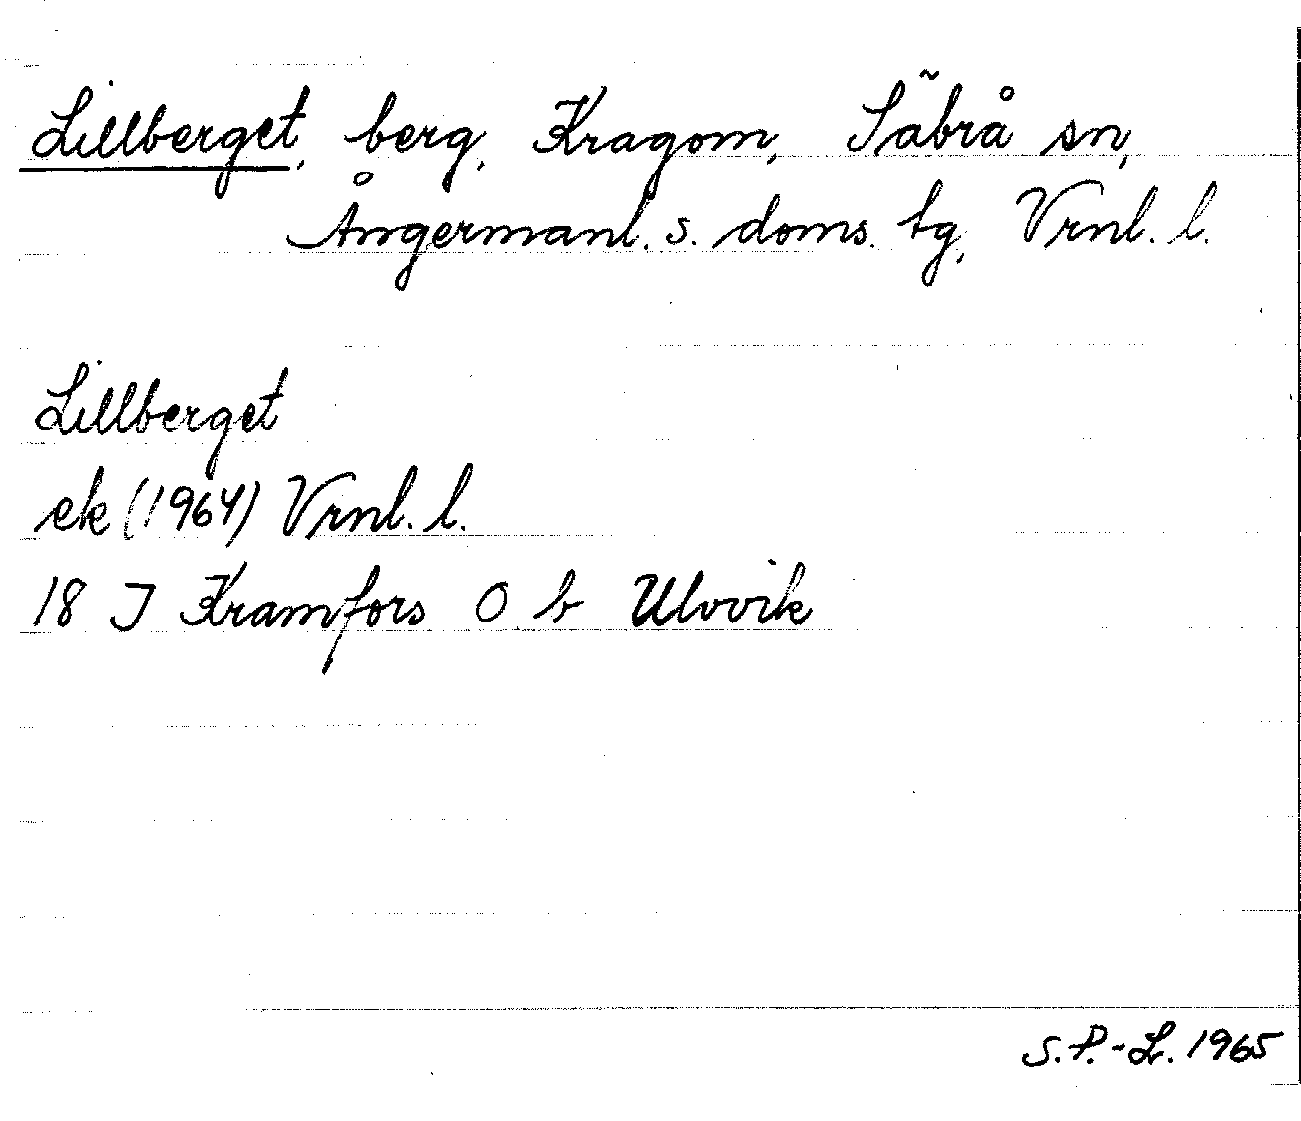 Lillberget, berg, Kragom, Säbrå sn,
Ångermanl. s. doms. tg, Vrnl. l.
Lillberget
ek (1964) Vrnl. l.
18 J Kramfors O b Ulvvik
S.P.-L. 1965